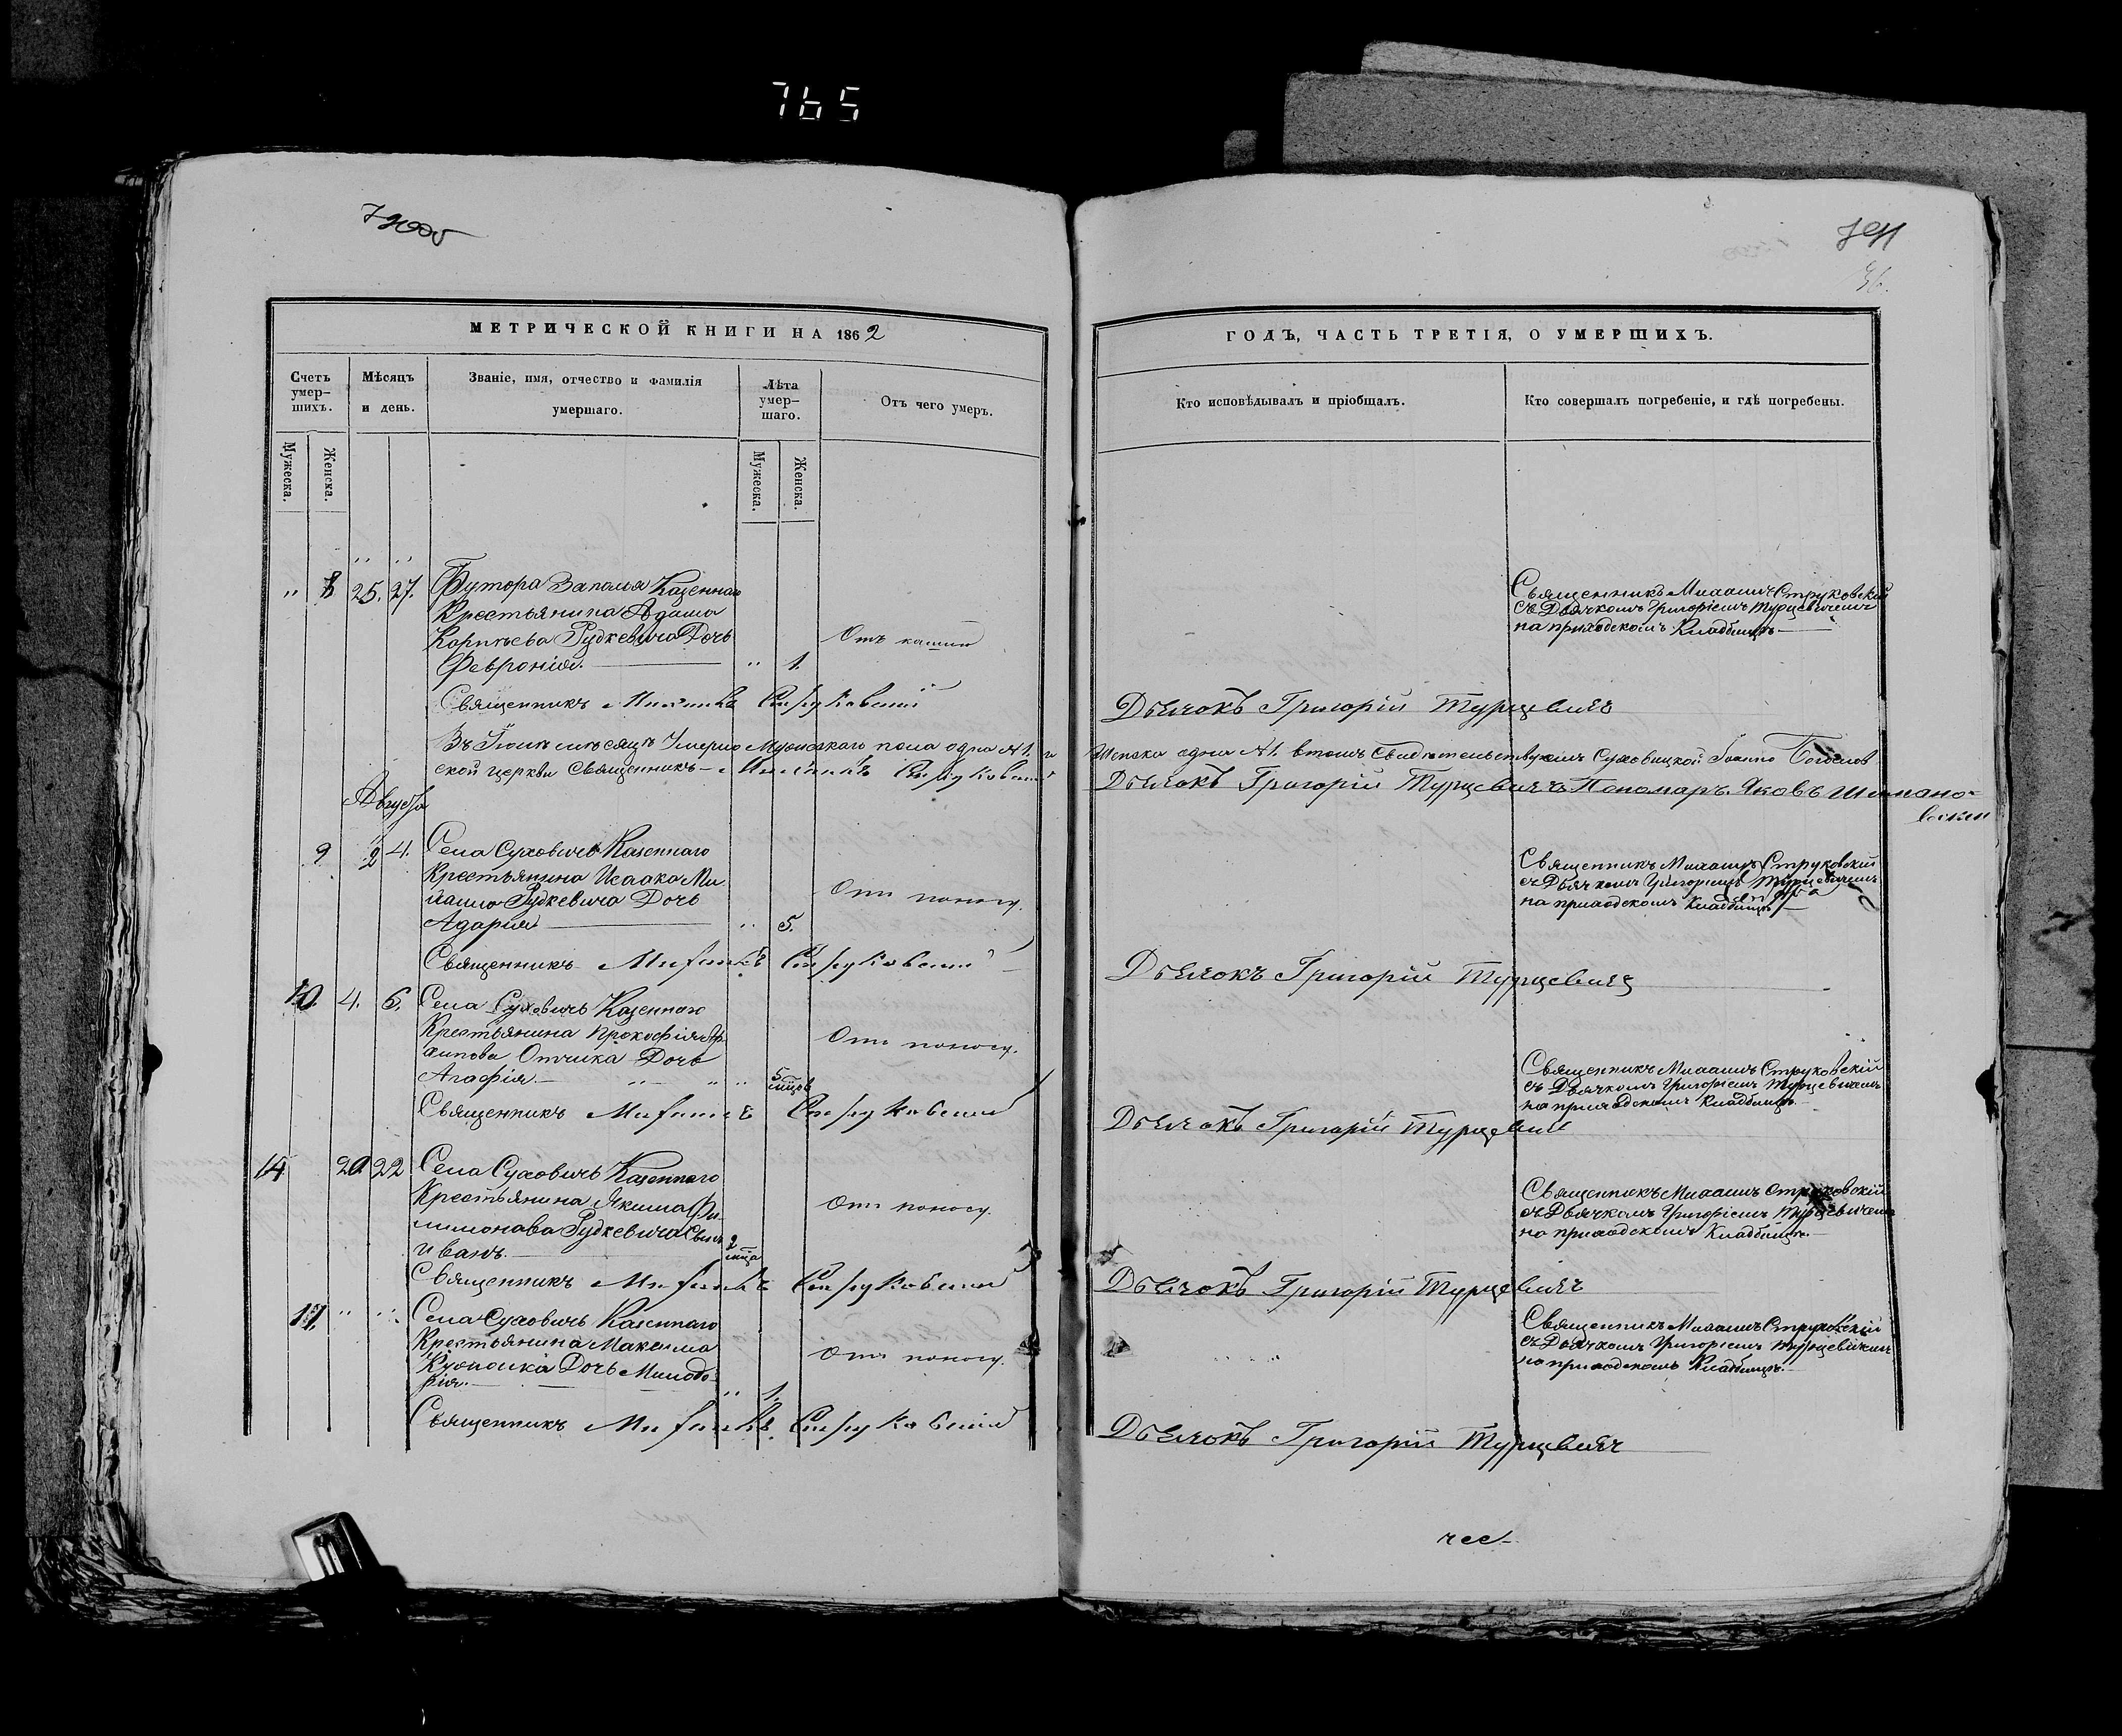 765
791
МЕТРИЧЕСКОЙ КНИГИ НА 1862
ГОДЪ, ЧАСТЬ ТРЕТІЯ, О УМЕРШИХЪ.
Счетъ умер-
шихъ.
Мѣсяцъ
и день.
Званіе, имя, отчество и фамилія
умершаго.
Лѣта
умер-
шаго.
Отъ чего умеръ.
Кто исповѣдывалъ и пріобщалъ.
Кто совершалъ погребеніе, и гдѣ погребены.
Мужеска.
Женска.
Мужеска.
Женска.
" 8 25. 27. Футора Заполья Казеннаго
Крестьянина Адама
Корнѣева Рудкевича Дочь
Февронія. " 1.
Отъ кашлю
Священникъ Михаилъ Струковскій
съ Дьячкомъ Григоріемъ Турцевичемъ
на приходскомъ Кладбищѣ
Священникъ Михаилъ Струковскій
Дьячокъ Григорій Турцевичъ
Въ Іюлѣ мѣсяцѣ Умерло Мужескаго пола одна №1. и
Женска одна №1. въ томъ свидѣтельствуемъ Суховицкой Іоанно Богослов
ской церкви Священникъ Михаилъ Струковскій
Дьячокъ Григорій Турцевичъ Пономарь Яковъ Шимано-
вскій
Августа
9 2 4. Села Суховичъ Казеннаго
Крестьянина Исаака Ми
Рудкевича Дочь
Адарія " 5.
Отъ поносу.
Священникъ Михаилъ Струковскій
съ Дьячкомъ Григоріемъ Турцевичемъ
на приходскомъ Кладбищѣ
Священникъ Михаилъ Струковскій
Дьячокъ Григорій Турцевичъ
10. 4. 6. Села Суховичъ Казеннаго
Крестьянина Прокофія
Дочь
Агафія " " " 5 мцов
Отъ поносу.
Священникъ Михаилъ Струковскій
съ Дьячкомъ Григоріемъ Турцевичемъ
на приходскомъ Кладбищѣ
Священникъ Михаилъ Струковскій
Дьячокъ Григорій Турцевичъ
14 20 22 Села Суховичъ Казеннаго
Крестьянина Якима Фи-
лимонава Рудкевича Сынъ
Иванъ. 2 мца
Отъ поносу.
Священникъ Михаилъ Струковскій
съ Дьячкомъ Григоріемъ Турцевичемъ
на приходскомъ Кладбищѣ
Священникъ Михаилъ Струковскій
Дьячокъ Григорій Турцевичъ
11. " " Села Суховичъ Казеннаго
Крестьянина Максима
Дочь
" 1.
Отъ поносу.
Священникъ Михаилъ Струковскій
съ Дьячкомъ Григоріемъ Турцевичемъ
на приходскомъ Кладбищѣ
Священникъ Михаилъ Струковскій
Дьячокъ Григорій Турцевичъ